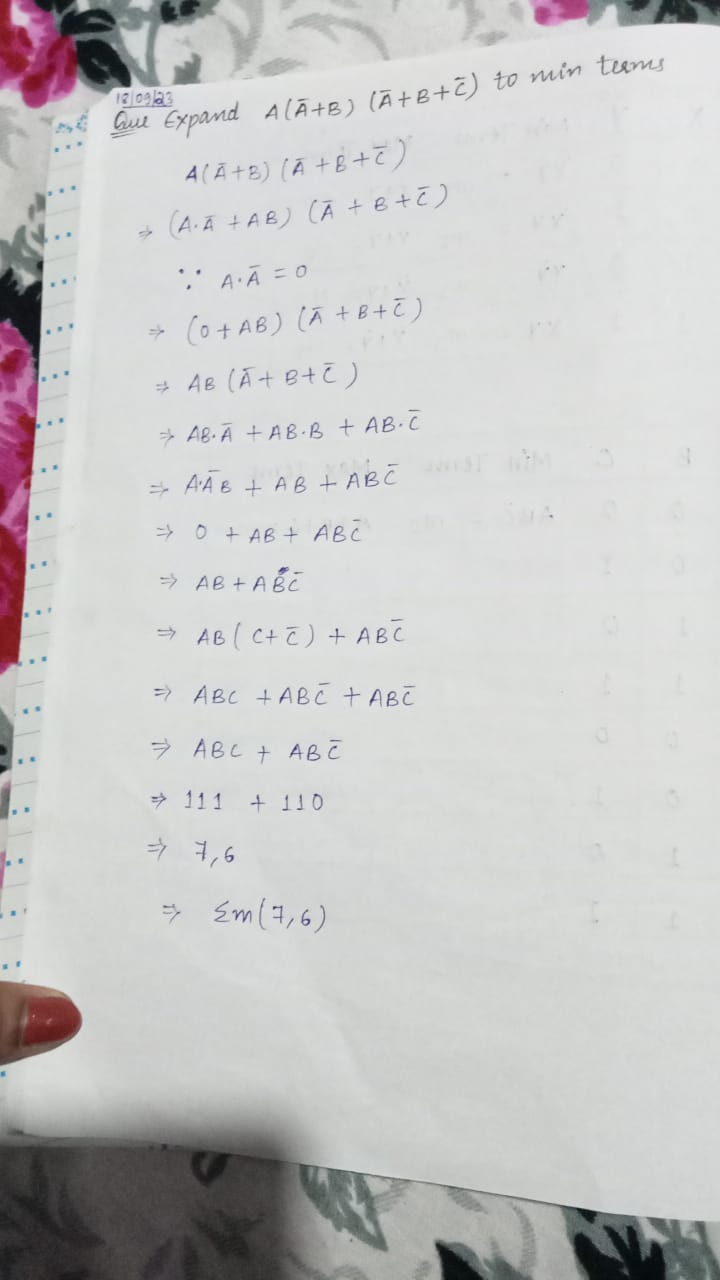 18/09/23
Que Expand A(Ā+B) (Ā+B+C̄) to min terms
A(Ā+B) (Ā+B+C̄)
⇒ (A·Ā + AB) (Ā + B+C̄)
∵ A·Ā = 0
⇒ (0+AB) (Ā+B+C̄)
⇒ AB (Ā+B+C̄)
⇒ AB·Ā + AB·B + AB·C̄
⇒ A·ĀB + AB + ABC̄
⇒ 0 + AB + ABC̄
⇒ AB + ABC̄
⇒ AB(C+C̄) + ABC̄
⇒ ABC + ABC̄ + ABC̄
⇒ ABC + ABC̄
⇒ 111 + 110
⇒ 7,6
⇒ Σm(7,6)